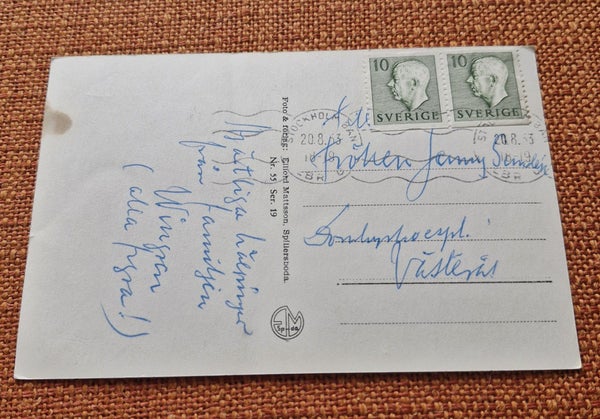 Hjärtliga hälsningar
från familjen
Wingren
(alla fyra!)
Foto & förlag: Eiford Mattsson, Spillersboda.
Nr. 55 Ser. 19
10 10
SVERIGE SVERIGE
STOCKHOLM BAN
20.8.53
20.8.53
Jenny
Västerås